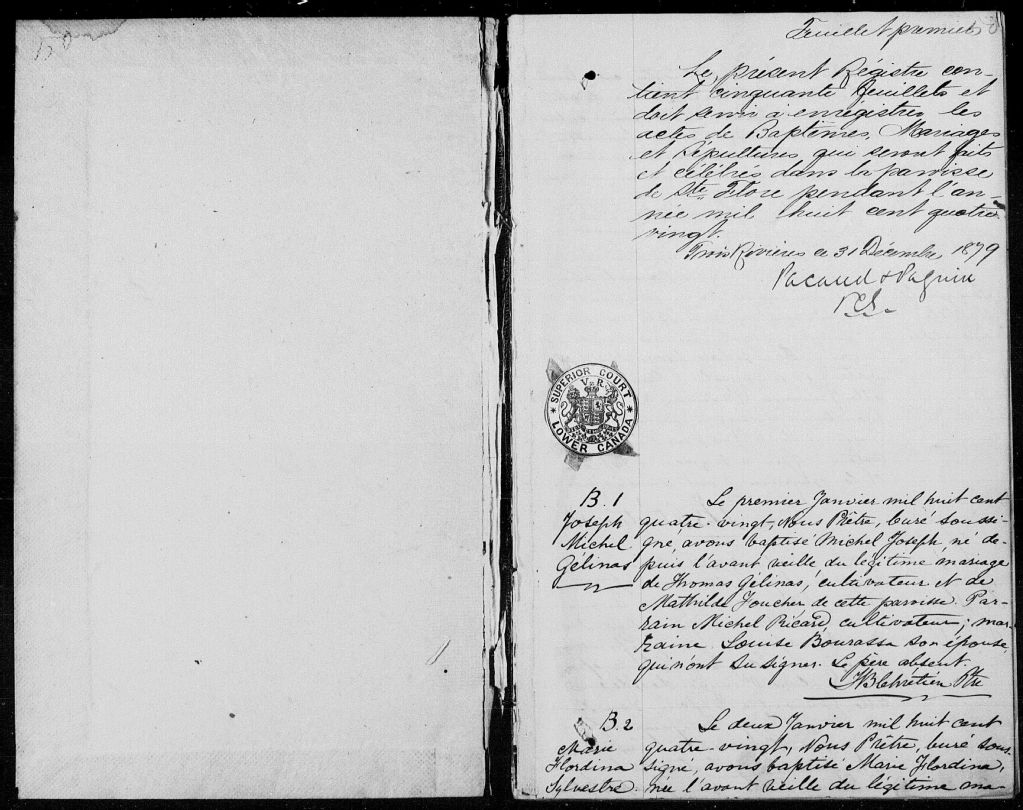 50
Feuillet premier
Le présent Régistre con-
tient cinquante feuillets et
doit servir à enrégistrer les
actes de Baptêmes, Mariages
et Sépultures qui seront faits
et célébrés dans la paroisse
de Ste Flore pendant l'an-
née mil huit cent quatre
vingt.
Trois Rivières ce 31 Décembre 1879
Pacaud & Paquin
SUPERIOR COURT
V. R.
LOWER CANADA
B. 1
Joseph
Michel
Gélinas
Le premier Janvier mil huit cent
quatre-vingt, Nous Prêtre, Curé soussi-
gné, avons baptisé Michel Joseph, né de-
puis l'avant veille du légitime mariage
de Thomas Gélinas, cultivateur et de
Mathilde Foucher de cette paroisse. Par-
rain Michel Ricard cultivateur; mar-
raine Louise Bourassa son épouse,
qui n'ont su signer. Le père absent.
JB Chrétien Ptre
B. 2
Marie
Flordina
Sylvestre
Le deux Janvier mil huit cent
quatre-vingt, Nous Prêtre, Curé sous-
signé, avons baptisé Marie Flordina,
née l'avant veille du légitime ma-